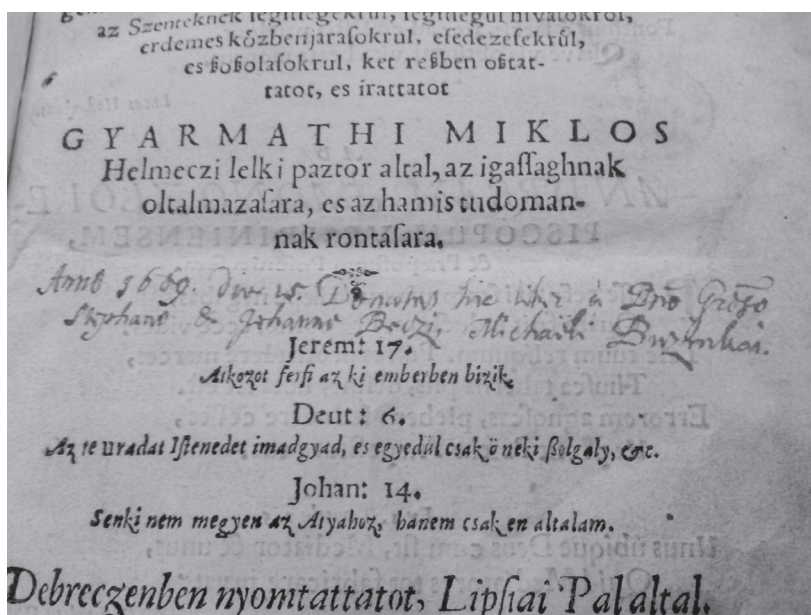 az Szenteknek segitsegekrul, segitsegul hivatokrol,
erdemes kőzbenjarasokrul, esedezesekrűl,
es ßoßolasokrul, ket reßben oßtat-
tatot, es irattatot
GYARMATHI MIKLOS
Helmeczi lelki paztor altal, az igaſſaghnak
oltalmazaſara, es az hamis tudoman-
nak rontaſara.
Anno 1669. die 15. Donatus hic liber à Dno Groſo
Stephano & Johanne Beczi, Michaeli Buzinkai.
Jerem: 17.
Atkozot ferfi az ki emberben bizik.
Deut: 6.
Az te uradat Iſtenedet imadgyad, es egyedűl csak ö neki ßolgaly, &c.
Johan: 14.
Senki nem megyen az Atyahoz, hanem csak en altalam.
Debreczenben nyomtattatot, Lipſiai Pal altal.